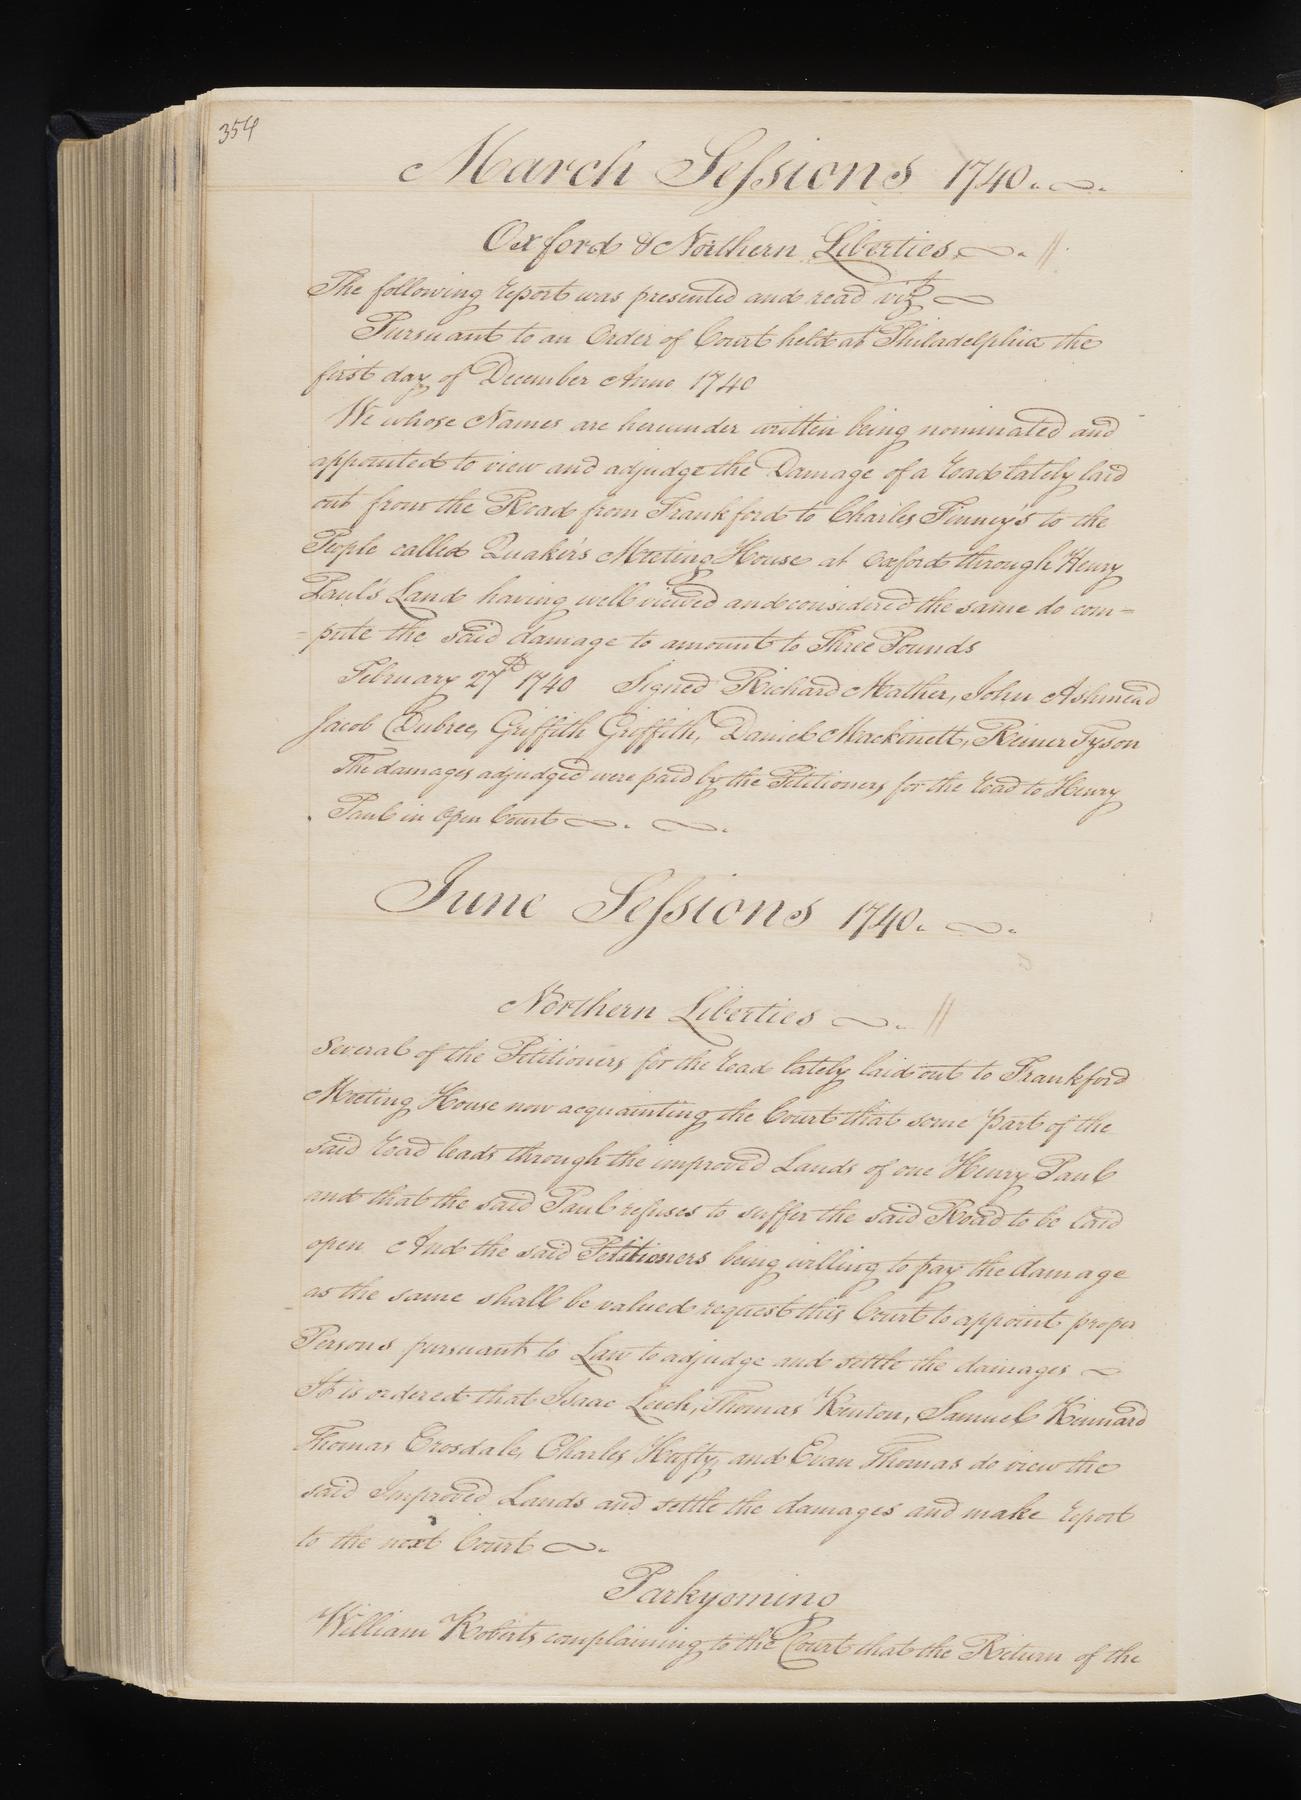 354
March Sessions 1740.
Oxford & Northern Liberties
The following report was presented and read vizt
Pursuant to an Order of Court held at Philadelphia the
first day of December Anno 1740
We whose Names are hereunder written being nominated and
appointed to view and adjudge the Damage of a road lately laid
out from the Road from Frankford to Charles Finney's to the
People called Quaker's Meeting House at Oxford through Henry
Paul's Land having well viewed and considered the same do com=
=pute the said damage to amount to Three Pounds
February 27th 1740 Signed Richard Mather, John Ashmead
Jacob Dubree, Griffith Griffith, Daniel Mackinett, Reiner Tyson
The damages adjudged were paid by the Petitioners for the road to Henry
Paul in open Court
June Sessions 1740.
Northern Liberties
Several of the Petitioners for the road lately laid out to Frankford
Meeting House now acquainting the Court that some part of the
said road leads through the improved Lands of one Henry Paul
and that the said Paul refuses to suffer the said Road to be laid
open And the said Petitioners being willing to pay the damage
as the same shall be valued request this Court to appoint proper
Persons pursuant to Law to adjudge and settle the damages
It is ordered that Isaac Leech, Thomas Kenton, Samuel Kinnard
Thomas Crosdale, Charles Hufty, and Evan Thomas do view the
said Improved Lands and settle the damages and make report
to the next Court
Parkyoming
William Roberts complaining to the Court that the Return of the